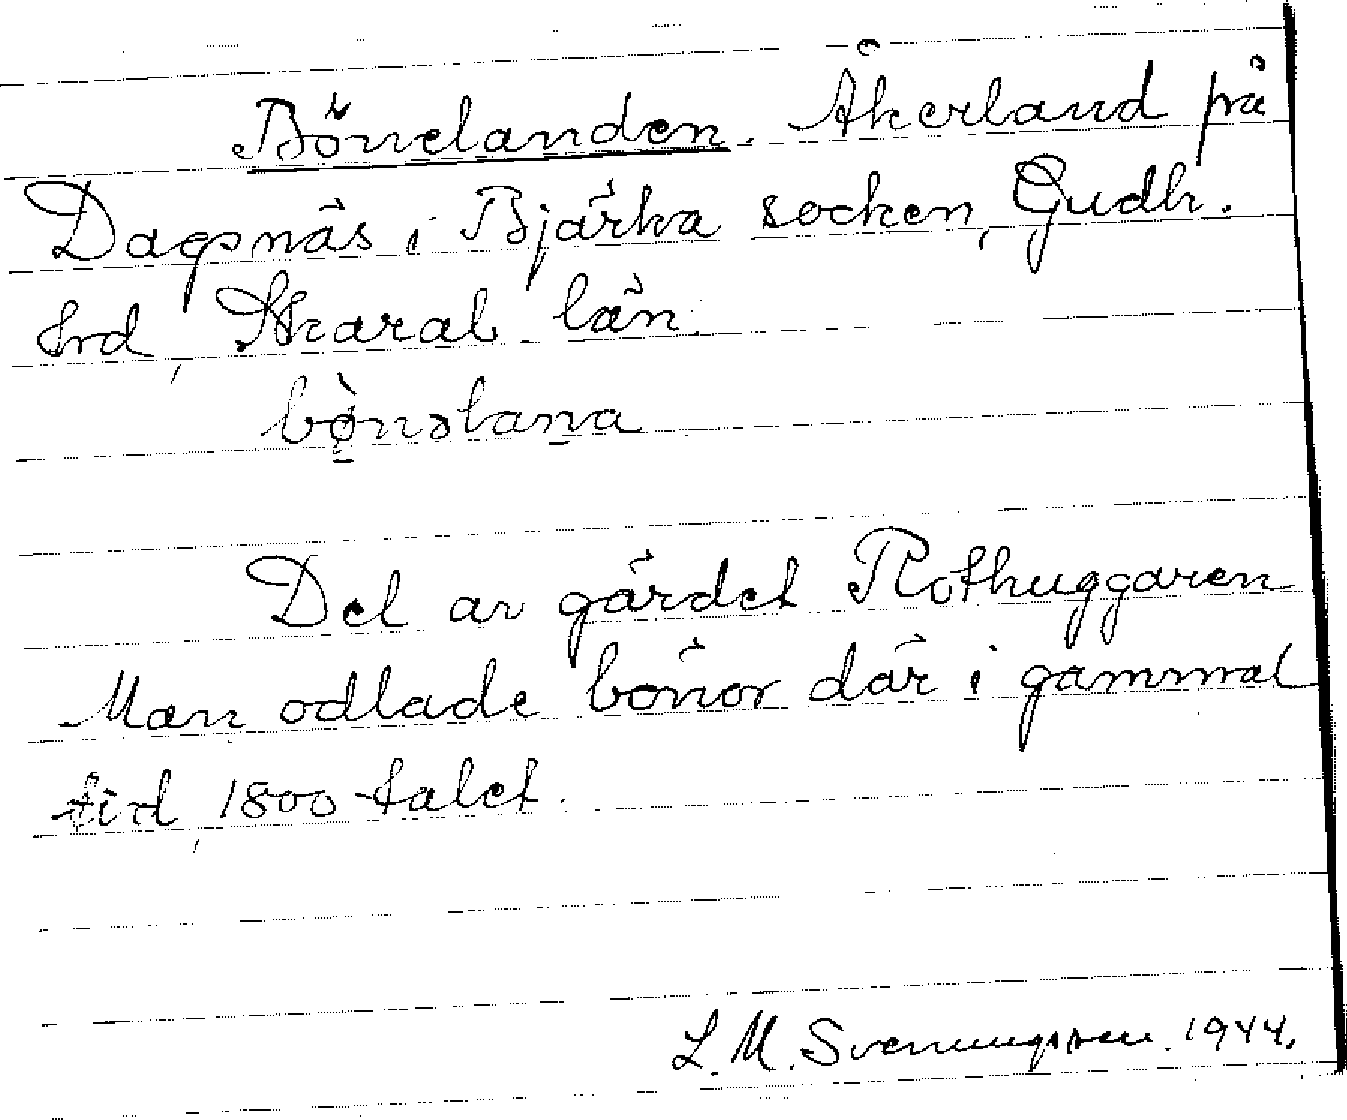 Bönelanden. Åkerland på
Dagsnäs i Bjärka socken, Gudh.
hrd, Skarab. län.
bø̀nəlana
Del av gärdet Rothuggaren
Man odlade bönor där i gammal
tid, 1800-talet.
L. M. Svenungsson. 1944.